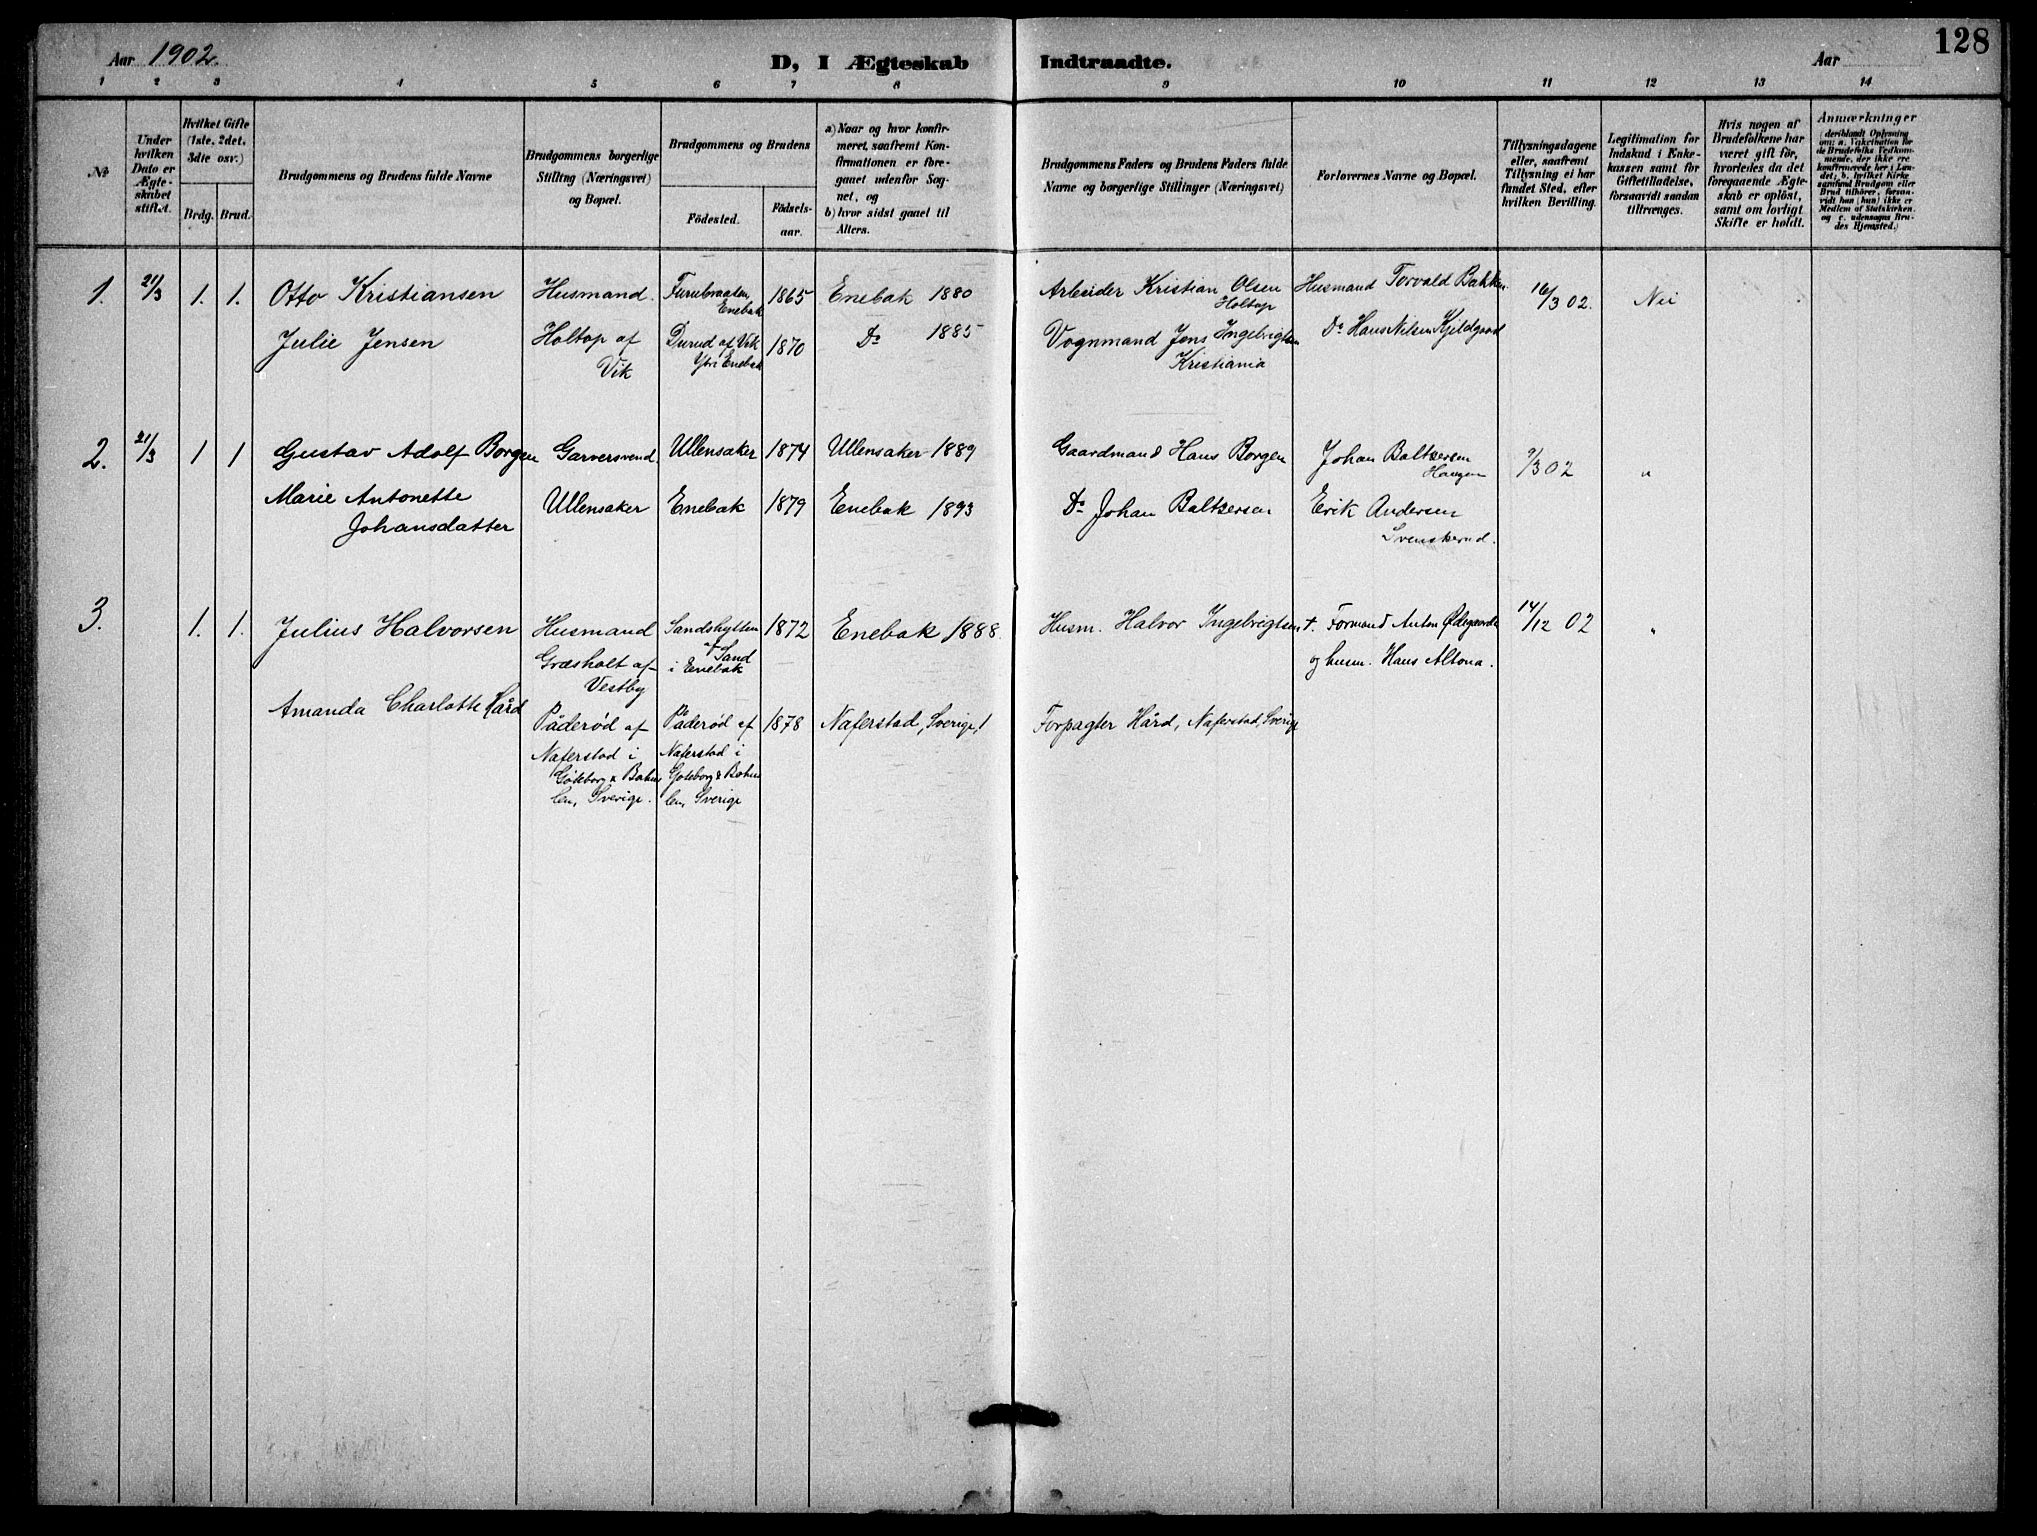 Aar 1902.
D, I Ægteskab Indtraadte.
Aar
128
1 2 3 4 5 6 7 8 9 10 11 12 13 14
№
Under hvilken Dato er Ægteskabet stiftet.
Hvilket Gifte (1ste, 2det, 3dte osv.)
Brdg. Brud.
Brudgommens og Brudens fulde Navne
Brudgommens borgerlige Stilling (Næringsvei) og Bopæl.
Brudgommens og Brudens
Födested.
Födselsaar.
a) Naar og hvor konfirmeret, saafremt Konfirmationen er foregaaet udenfor Sognet, og
b) hvor sidst gaaet til Alters.
Brudgommens Faders og Brudens Faders fulde Navne og borgerlige Stillinger (Næringsvei)
Forlovernes Navne og Bopæl.
Tillysningsdagene eller, saafremt Tillysning ei har fundet Sted, efter hvilken Bevilling.
Legitimation for Indskud i Enkekassen samt for Giftetilladelse, forsaavidt saadan tiltrænges.
Hvis nogen af Brudefolkene har været gift för, hvorledes da det foregaaende Ægteskab er oplöst, samt om lovligt Skifte er holdt.
Anmærkninger
(deriblandt Oplysning om: a. Vakcination for de Brudefolks Vedkommende, der ikke ere konfirmerede her i Landet; b. hvilket Kirkesamfund Brudgom eller Brud tilhörer, forsaavidt han (hun) ikke er Medlem af Statskirken, og c. udensogns Brudes Hjemsted.)
1. 21/3 1. 1. Otto Kristiansen Husmand. Furubraaten, Enebak 1865 Enebak 1880 Arbeider Kristian Olsen Holtop Husmand Torvald Bakken 16/3 02. Nei
Julie Jensen Holtop af Vik Durud af Vik Ytri Enebak 1870 Do 1885 Vognmand Jens Ingebrigtsen Kristiania Do Hans Nilsen Kjeldgaard
2. 21/3 1 1 Gustav Adolf Borgen Garversvend. Ullensaker 1874 Ullensaker 1889 Gaardmand Hans Borgen Johan Baltzersen Haugen 9/3 02 "
Marie Antonette Johansdatter Ullensaker Enebak 1879 Enebak 1893 Do Johan Baltzersen Erik Andersen Svenskerud.
3. 1. 1. Julius Halvorsen Husmand Græsholt af Vestby Sandshytten af Sand i Enebak 1872 Enebak 1888. Husm. Halvor Ingebrigtsen †. Formand Anton Ødegaard og husm. Hans Altona. 14/12 02 "
Amanda Charlotte Hård Påderød af Naferstad i Göteborg & Bohus len, Sverige. Påderød af Naferstad i Göteborg & Bohus len, Sverige 1878 Naferstad, Sverige, Forpagter Hård, Naferstad, Sverige